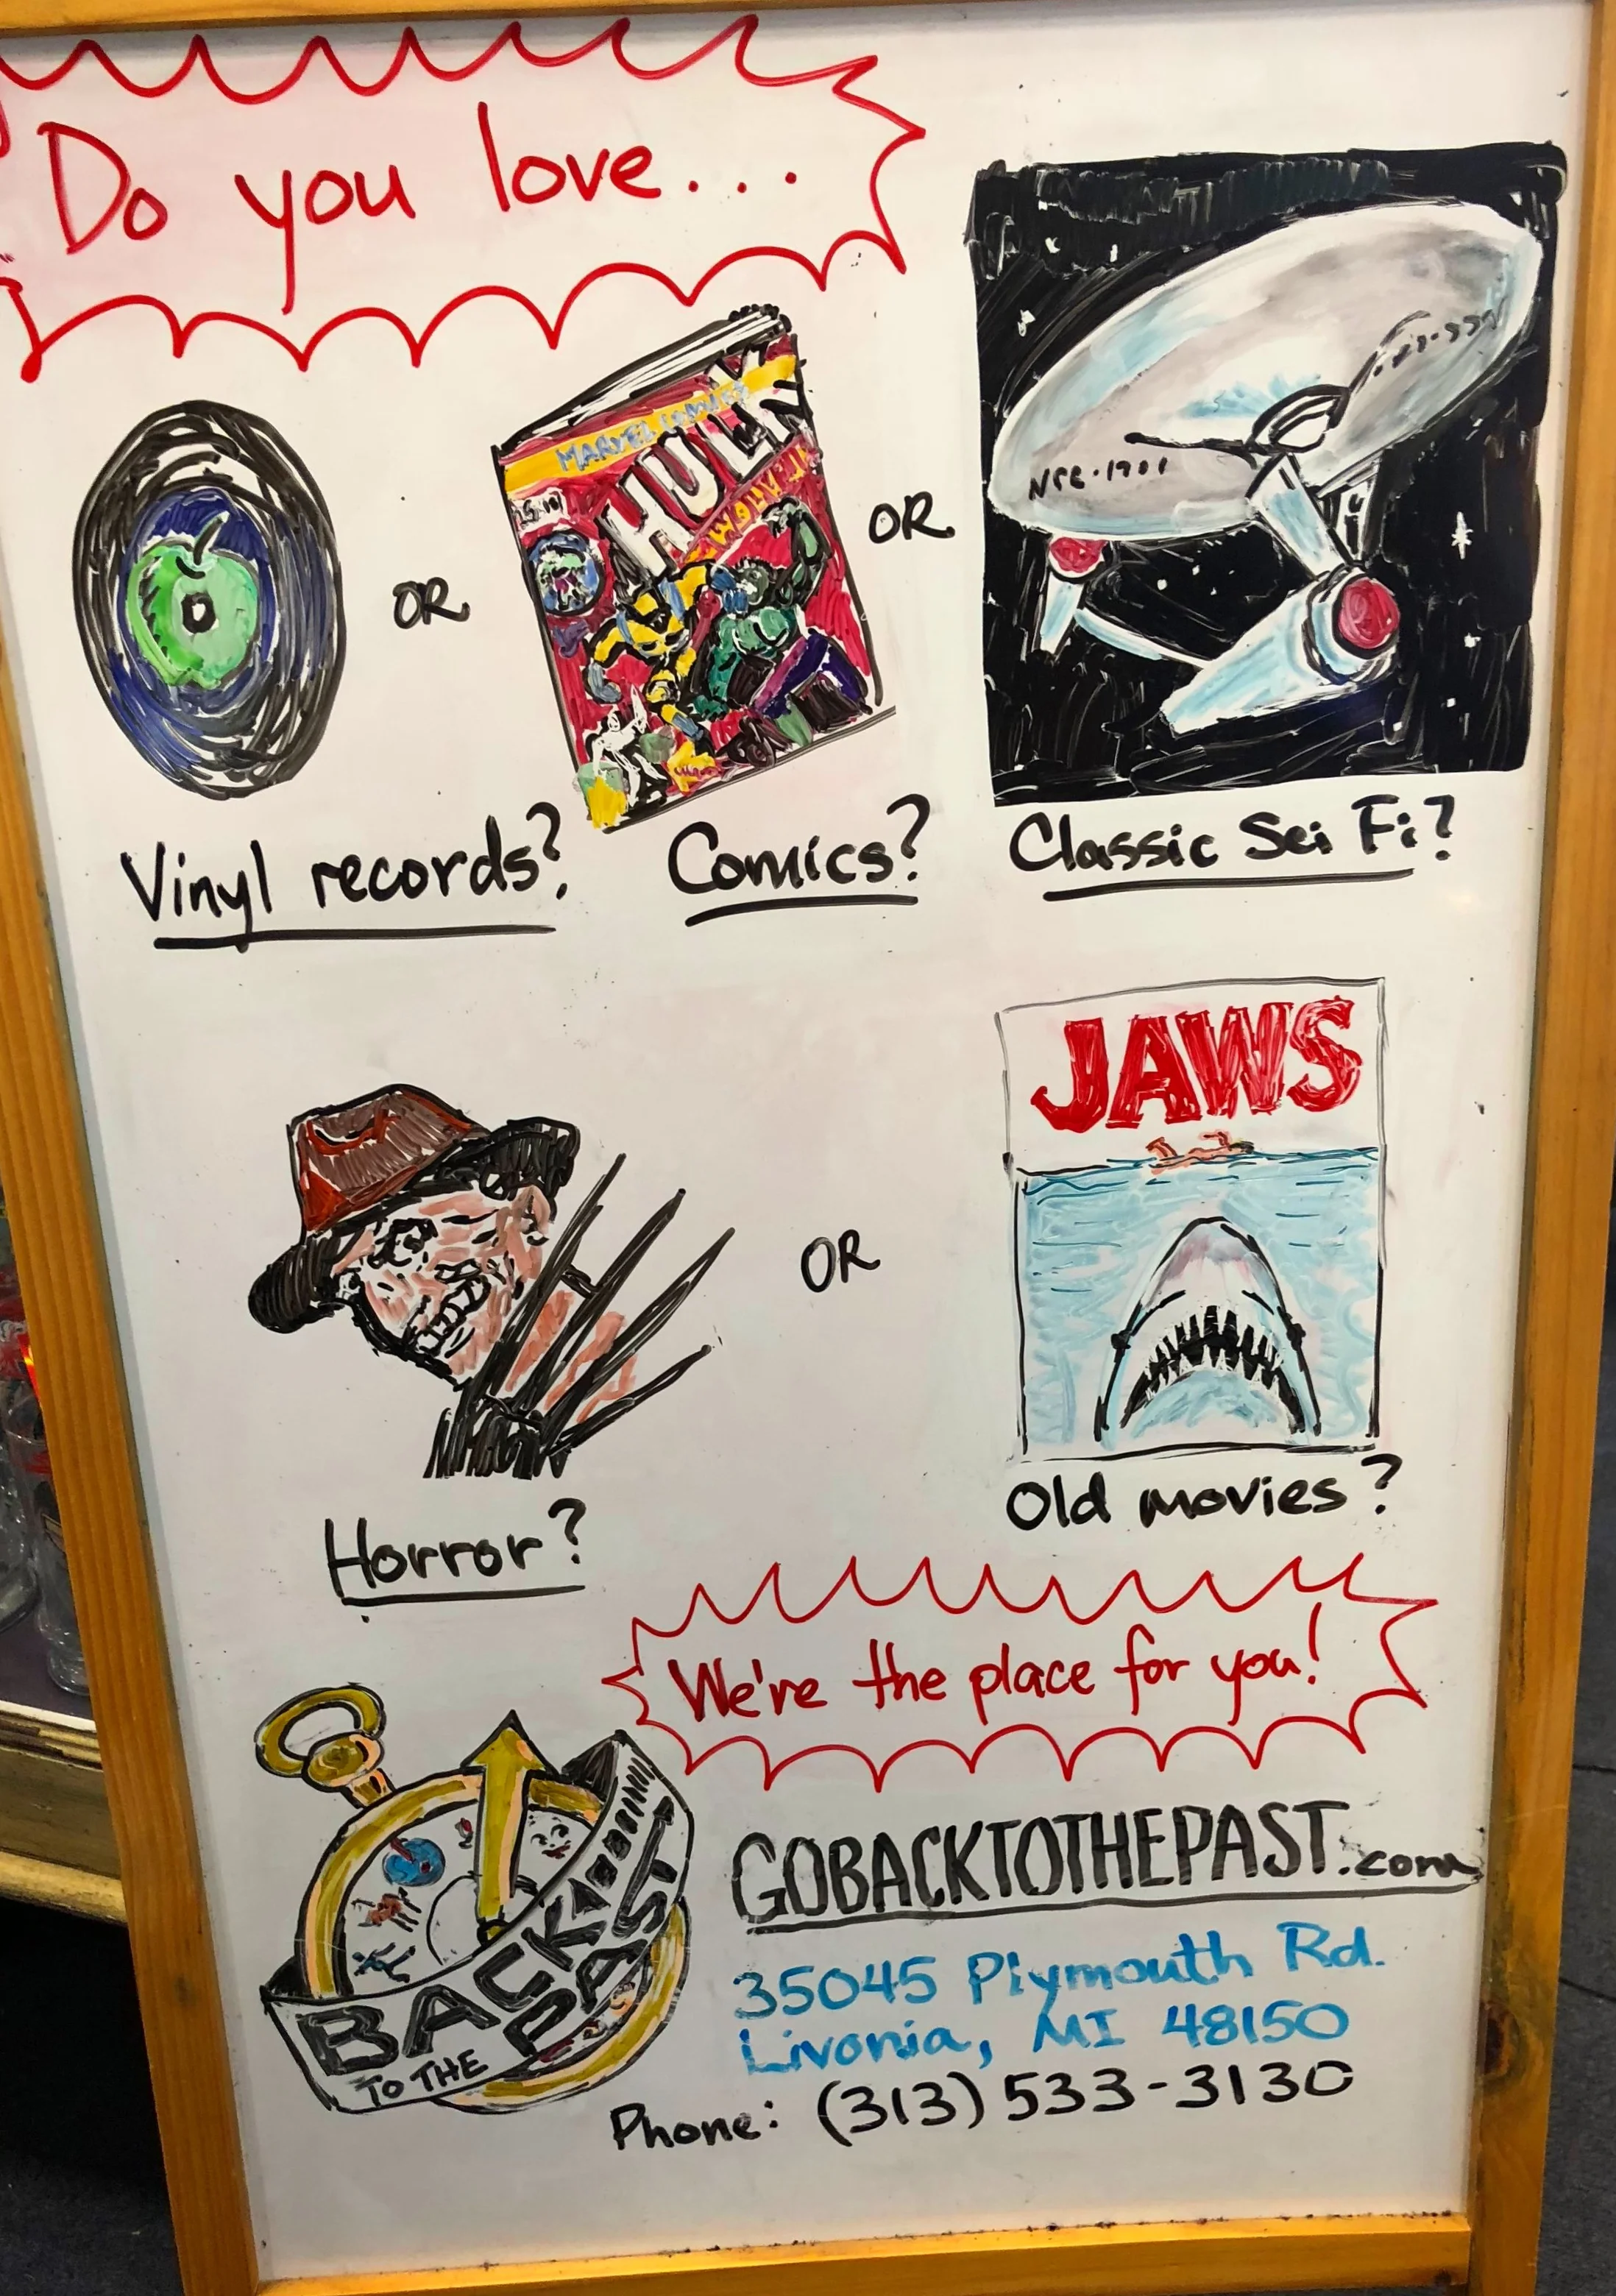 Do you love...
OR
MARVEL COMICS
HULK
OR
NCC-1701
Vinyl records?
Comics?
Classic Sci Fi?
JAWS
OR
Old movies?
Horror?
We're the place for you!
BACK
TO THE
PAST
GOBACKTOTHEPAST.com
35045 Plymouth Rd.
Livonia, MI 48150
Phone: (313) 533-3130